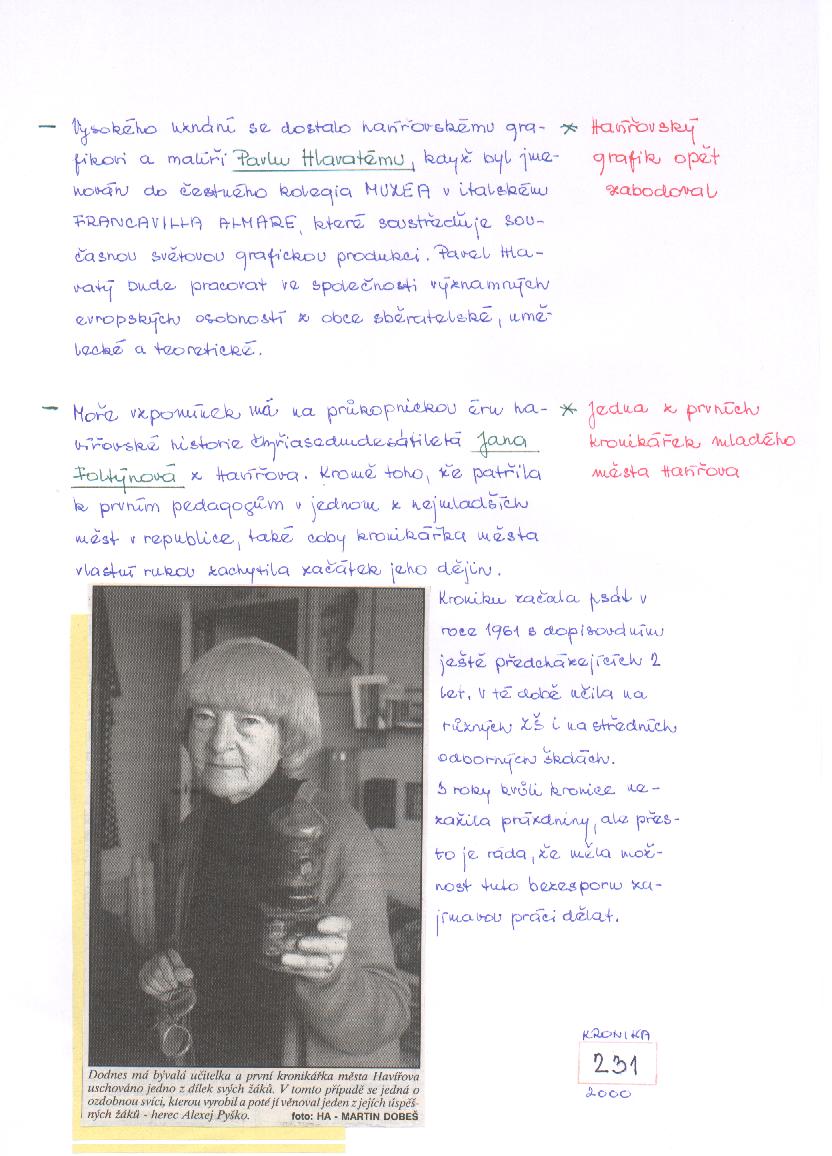 – Vysokého uznání se dostalo havířovskému gra-
fikovi a malíři Pavlu Hlavatému, když byl jme-
nován do čestného kolegia MUZEA v italském
FRANCAVILLA ALMARE, které soustřeďuje sou-
časnou světovou grafickou produkci. Pavel Hla-
vatý bude pracovat ve společnosti významných
evropských osobností z obce sběratelské, umě-
lecké a teoretické.
* Havířovský
grafik opět
zabodoval
– Moře vzpomínek má na průkopnickou éru ha-
vířovské historie čtyřiasedmdesátiletá Jana
Foltýnová z Havířova. Kromě toho, že patřila
k prvním pedagogům v jednom z nejmladších
měst v republice, také coby kronikářka města
vlastní rukou zachytila začátek jeho dějin.
* Jedna z prvních
kronikářek mladého
města Havířova
Kroniku začala psát v
roce 1961 s dopisováním
ještě předcházejících 2
let. V té době učila na
různých ZŠ i na středních
odborných školách.
S roky kvůli kronice ne-
zažila prázdniny, ale přes-
to je ráda, že měla mož-
nost tuto bezesporu za-
jímavou práci dělat.
Dodnes má bývalá učitelka a první kronikářka města Havířova
uschováno jedno z dílek svých žáků. V tomto případě se jedná o
ozdobnou svíci, kterou vyrobil a poté jí věnoval jeden z jejích úspěš-
ných žáků - herec Alexej Pyško. foto: HA - MARTIN DOBEŠ
KRONIKA
231
2000